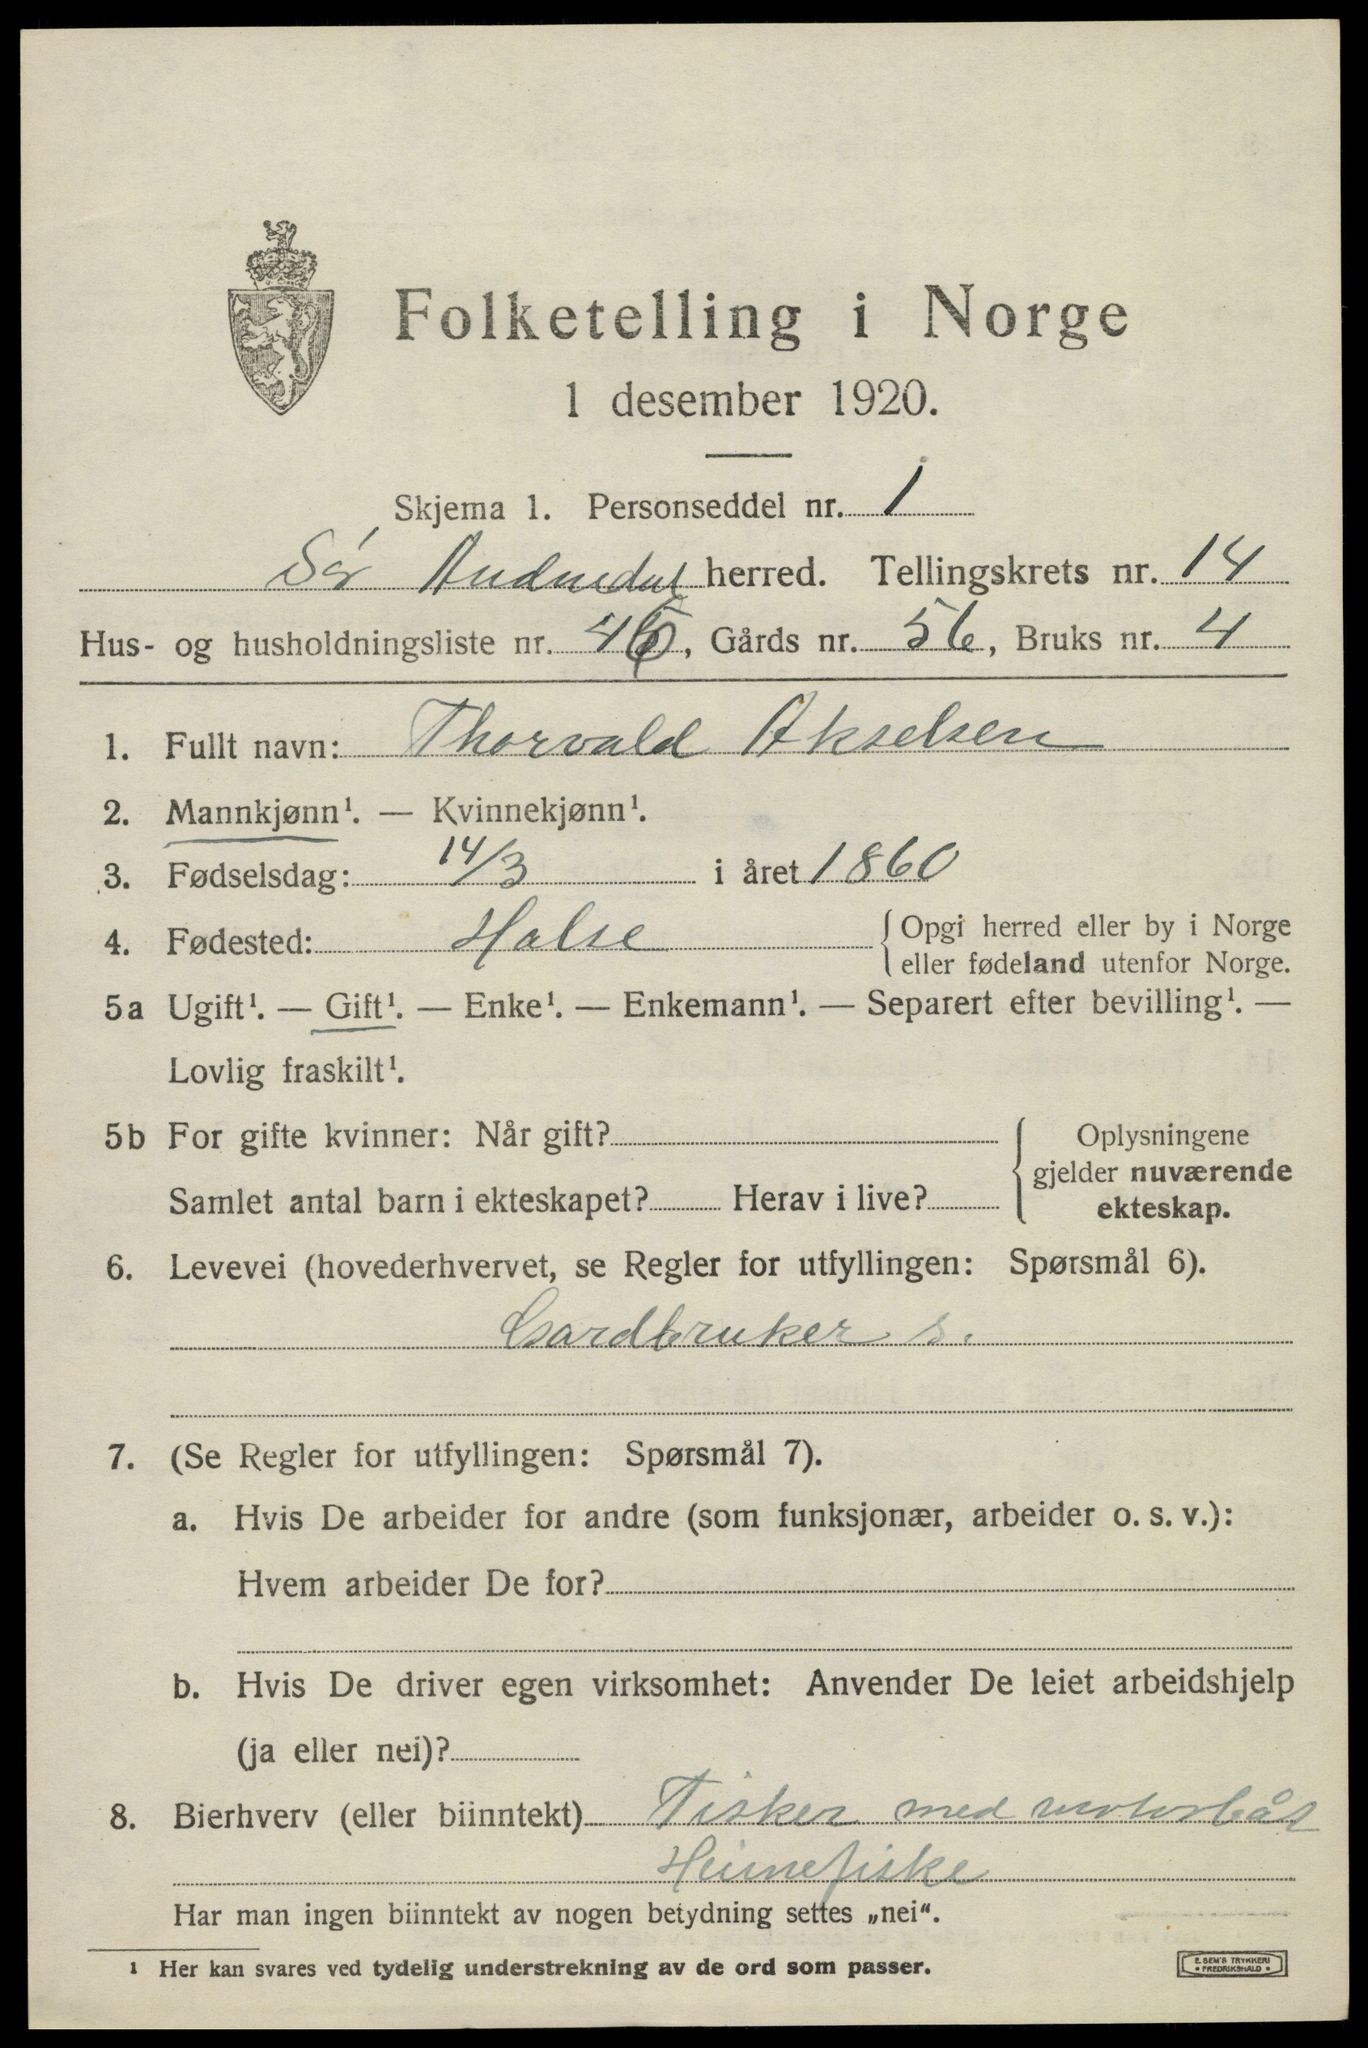 Folketelling i Norge
1 desember 1920.
Skjema 1. Personseddel nr. 1
Sør Audnedal herred. Tellingskrets nr. 14
Hus- og husholdningsliste nr. 46, Gårds nr. 56, Bruks nr. 4
1. Fullt navn: Thorvald Akselsen
2. Mannkjønn¹. — Kvinnekjønn¹.
3. Fødselsdag: 14/3 i året 1860
4. Fødested: Halse { Opgi herred eller by i Norge
eller fødeland utenfor Norge.
5a Ugift¹. — Gift¹. — Enke¹. — Enkemann¹. — Separert efter bevilling¹. —
Lovlig fraskilt¹.
5b For gifte kvinner: Når gift? { Oplysningene
gjelder nuværende
Samlet antal barn i ekteskapet? Herav i live? ekteskap.
6. Levevei (hovederhvervet, se Regler for utfyllingen: Spørsmål 6).
Gardbruker s.
7. (Se Regler for utfyllingen: Spørsmål 7).
a. Hvis De arbeider for andre (som funksjonær, arbeider o. s. v.):
Hvem arbeider De for?
b. Hvis De driver egen virksomhet: Anvender De leiet arbeidshjelp
(ja eller nei)?
8. Bierhverv (eller biinntekt) Fisker med motorbåt
Heimefiske
Har man ingen biinntekt av nogen betydning settes „nei“.
¹ Her kan svares ved tydelig understrekning av de ord som passer.
E. SEM'S TRYKKERI
• FREDRIKSHALD •